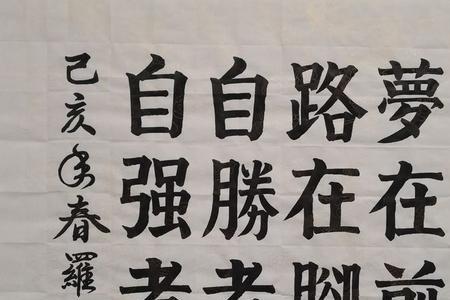 夢在前
路在腳
自勝者
自强者
己亥年春羅